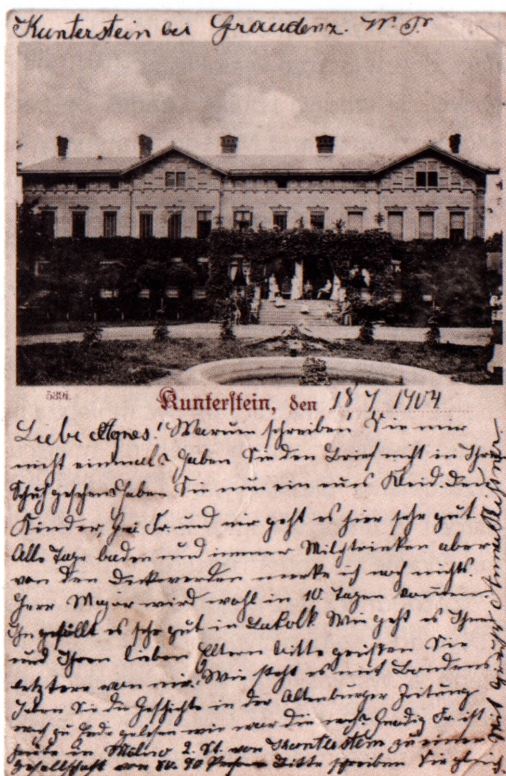 Kunterstein bei Graudenz. W. Pr.
5391.
Kunterstein, den 18 7 1904
Liebe Agnes! Warum schreiben Sie mir
nicht einmal? Haben Sie den Brief nicht in Ihren
Haben Sie nun ein neues Kleid. Den
Kindern, Fr. und mir geht es hier sehr gut
Alle Tage baden und immer Milchtrinken aber
von dem Dickwerden merke ich noch nichts.
Herr Major wird wohl in 10 Tagen kommen.
Ihm gefällt es sehr gut in Lakolk Wie geht es Ihnen
und Ihren lieben Eltern bitte grüßen Sie
letztere von mir. Wie steht es mit
Haben Sie die Geschichte in der Altenburger Zeitung
noch zu Ende gelesen wie war die noch? Gnädige Fr. ist
heute in Melno 2 St. von Kunterstein zu einer
Gesellschaft von 90 Bitte schreiben Sie gleich
Mit Gruß Anna